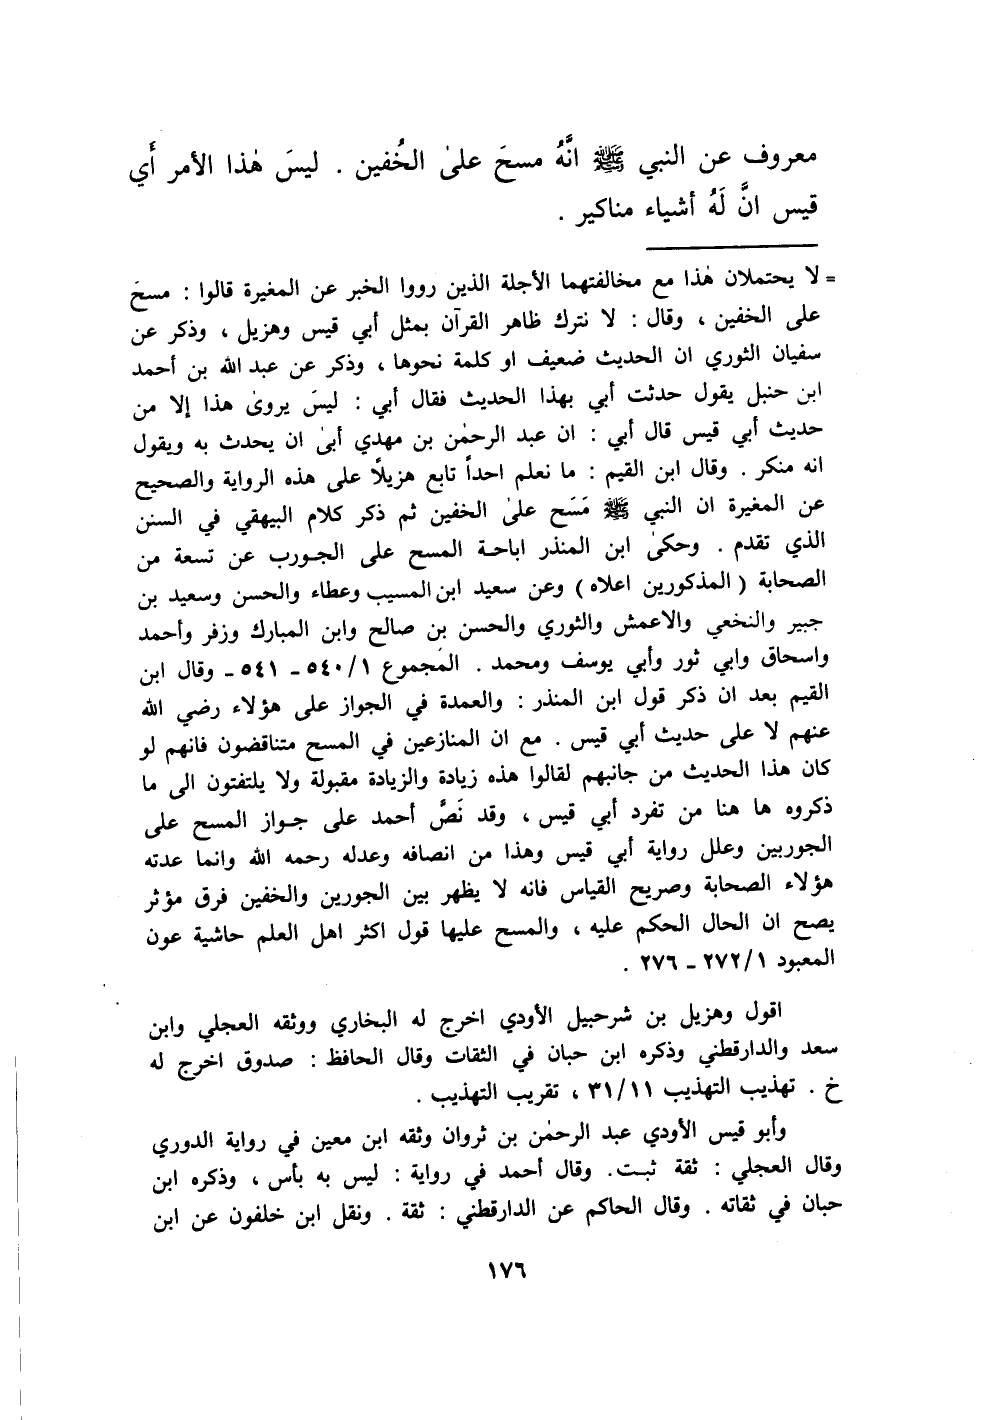 معروف عن النبي ﷺ انَّهُ مسحَ علىٰ الخُفين . ليسَ هٰذا الأمر أَي
قيس انَّ لَهُ أشياء مناكير .
= لا يحتملان هٰذا مع مخالفتهما الأجلة الذين رووا الخبر عن المغيرة قالوا : مسحَ
على الخفين ، وقال : لا نترك ظاهر القرآن بمثل أبي قيس وهزيل ، وذكر عن
سفيان الثوري ان الحديث ضعيف او كلمة نحوها ، وذكر عن عبد الله بن أحمد
ابن حنبل يقول حدثت أبي بهذا الحديث فقال أبي : ليسَ يروىٰ هذا إلا من
حديث أبي قيس قال أبي : ان عبد الرحمٰن بن مهدي أبىٰ ان يحدث به ويقول
انه منكر . وقال ابن القيم : ما نعلم احداً تابع هزيلًا على هذه الرواية والصحيح
عن المغيرة ان النبي ﷺ مَسَح علىٰ الخفين ثم ذكر كلام البيهقي في السنن
الذي تقدم . وحكىٰ ابن المنذر اباحة المسح على الجورب عن تسعة من
الصحابة ( المذكورين اعلاه ) وعن سعيد ابن المسيب وعطاء والحسن وسعيد بن
جبير والنخعي والاعمش والثوري والحسن بن صالح وابن المبارك وزفر وأحمد
واسحاق وابي ثور وأبي يوسف ومحمد . المجموع ٥٤٠/١ - ٥٤١ - وقال ابن
القيم بعد ان ذكر قول ابن المنذر : والعمدة في الجواز على هؤلاء رضي الله
عنهم لا على حديث أبي قيس . مع ان المنازعين في المسح متناقضون فانهم لو
كان هذا الحديث من جانبهم لقالوا هذه زيادة والزيادة مقبولة ولا يلتفتون الى ما
ذكروه ها هنا من تفرد أبي قيس ، وقد نَصَّ أحمد على جواز المسح على
الجوربين وعلل رواية أبي قيس وهذا من انصافه وعدله رحمه الله وانما عدته
هؤلاء الصحابة وصريح القياس فانه لا يظهر بين الجورين والخفين فرق مؤثر
يصح ان الحال الحكم عليه ، والمسح عليها قول اكثر اهل العلم حاشية عون
المعبود ٢٧٢/١ - ٢٧٦ .
اقول وهزيل بن شرحبيل الأودي اخرج له البخاري ووثقه العجلي وابن
سعد والدارقطني وذكره ابن حبان في الثقات وقال الحافظ : صدوق اخرج له
خ . تهذيب التهذيب ٣١/١١ ، تقريب التهذيب .
وأبو قيس الأودي عبد الرحمٰن بن ثروان وثقه ابن معين في رواية الدوري
وقال العجلي : ثقة ثبت. وقال أحمد في رواية : ليس به بأس ، وذكره ابن
حبان في ثقاته . وقال الحاكم عن الدارقطني : ثقة . ونقل ابن خلفون عن ابن
١٧٦